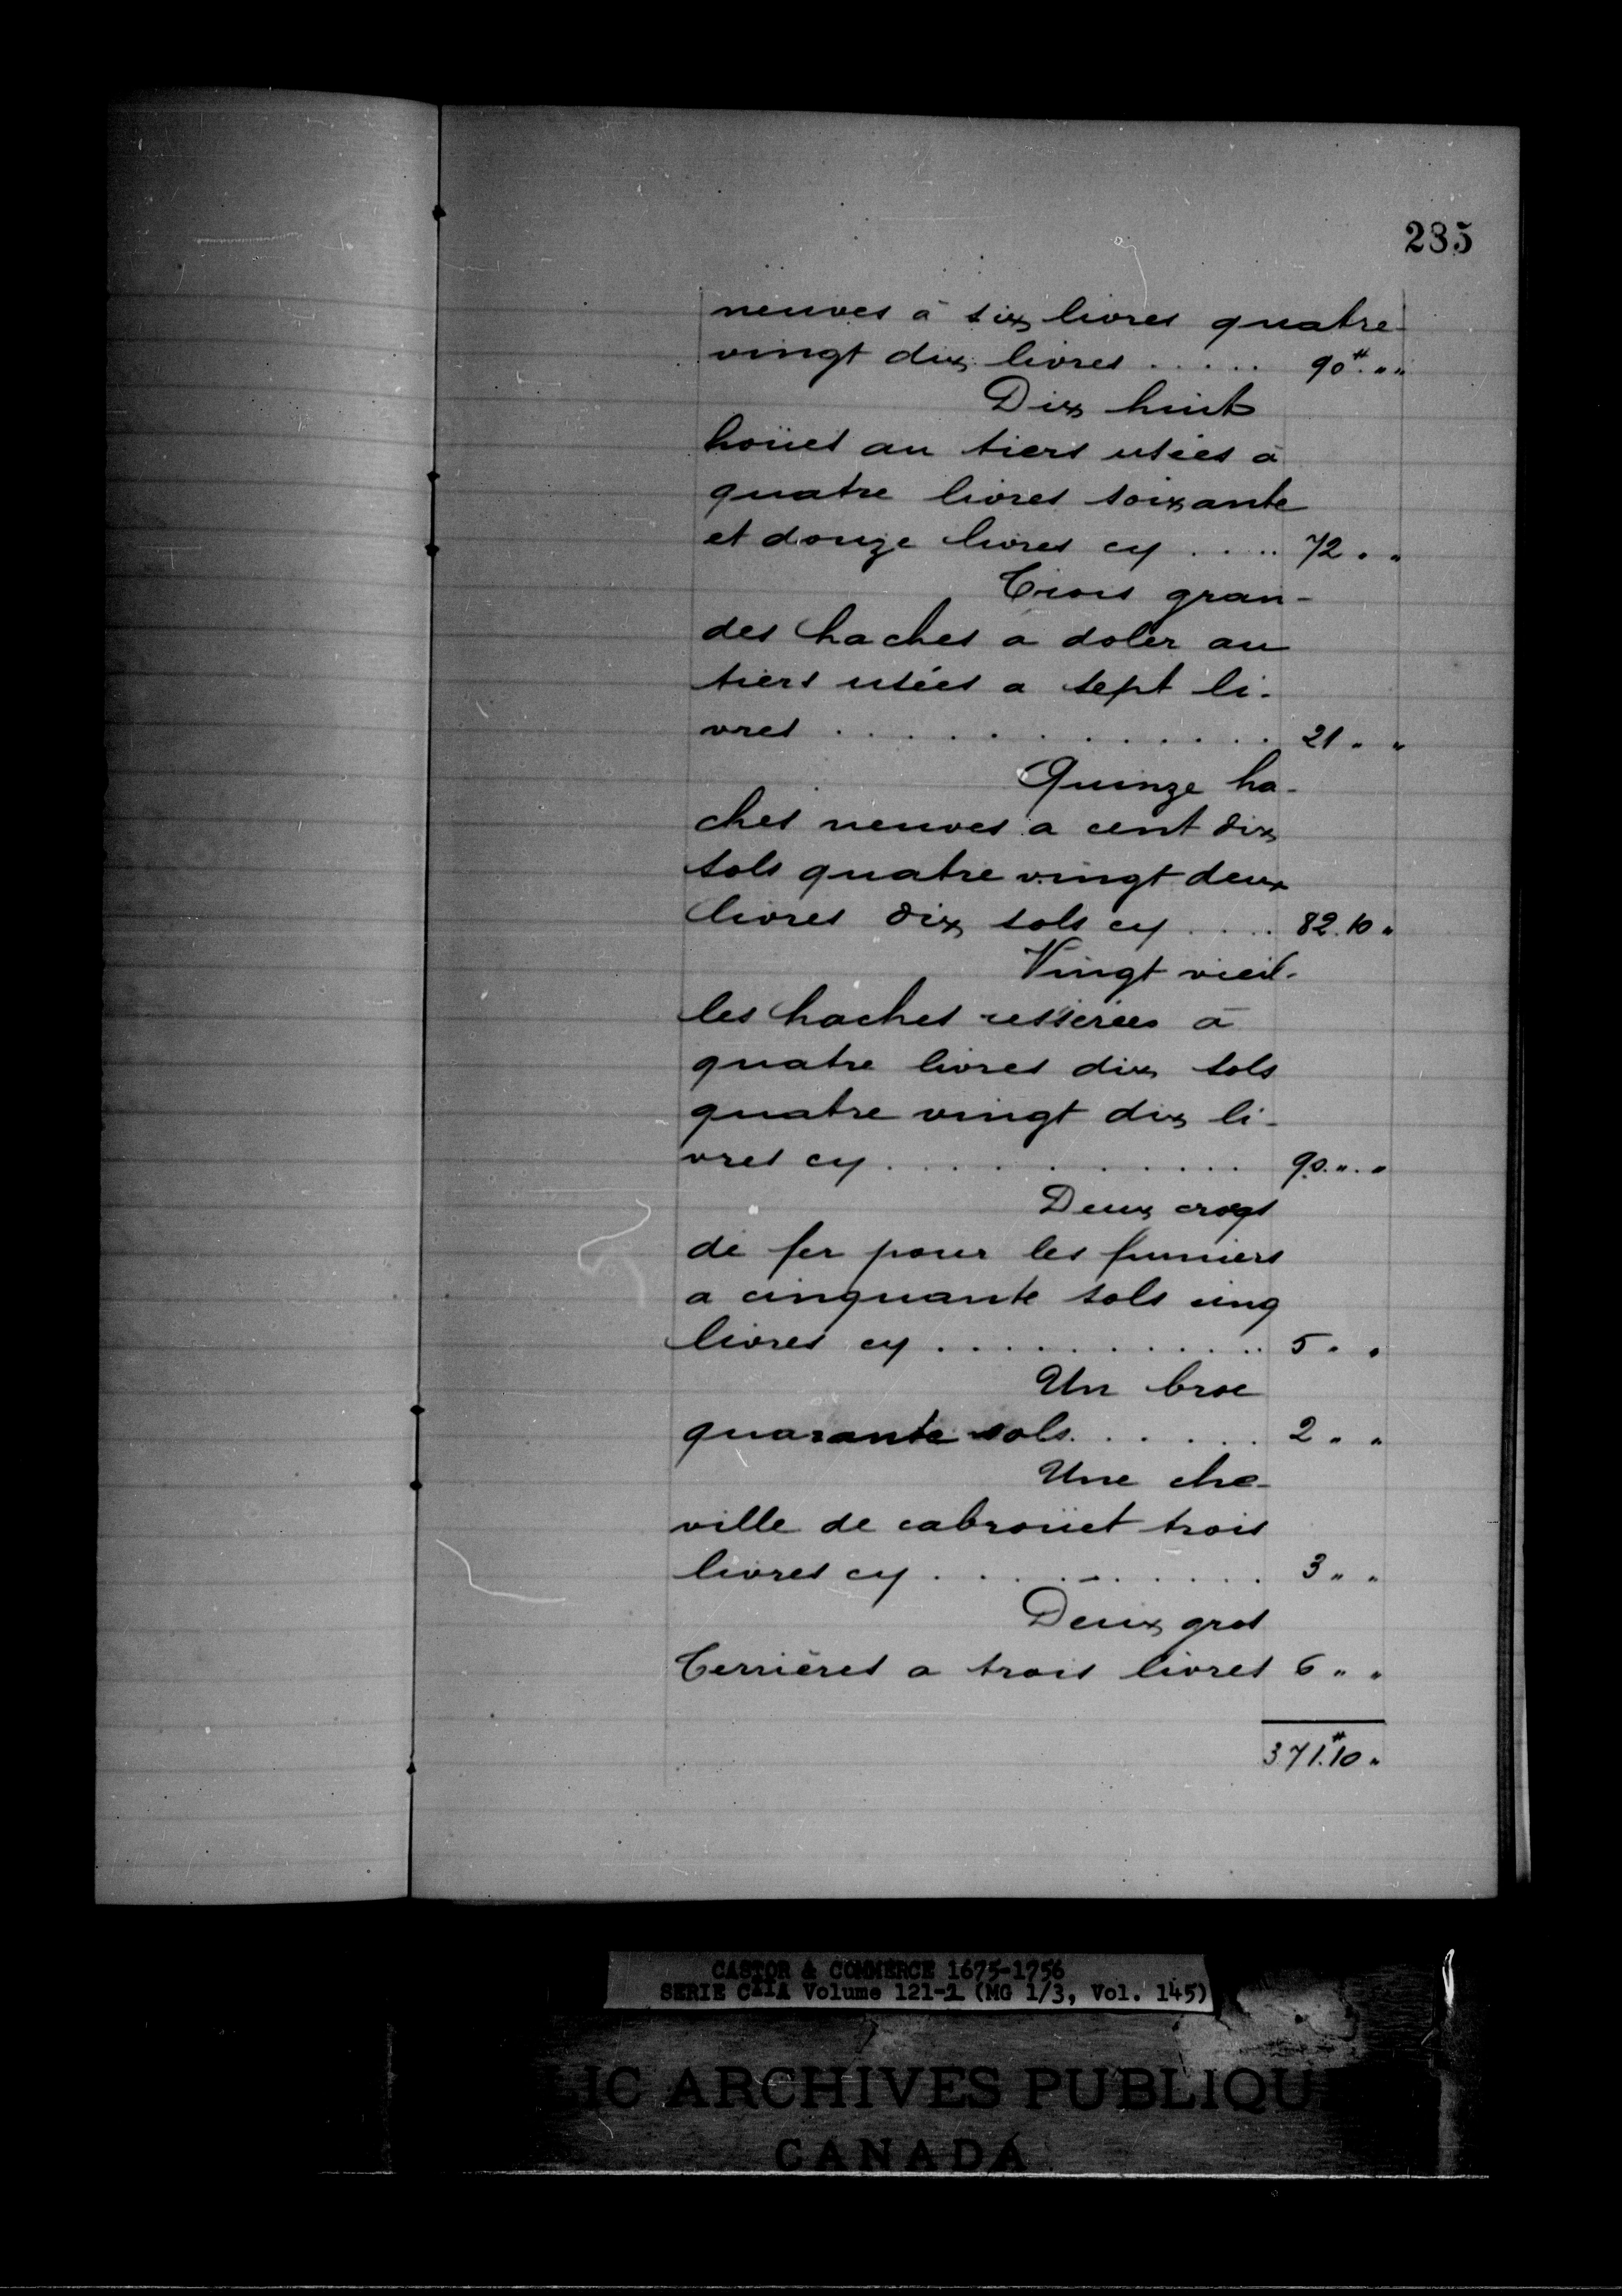 235
neuves à six livres quatre-
vingt dix livres ..... 90#. " "
Dix huit
houes au tiers usées à
quatre livres soixante
et douze livres cy ..... 72 . "
Trois gran-
des haches a doler au
tiers usées a sept li-
vres ............ 21 . "
Quinze ha-
ches neuves a cent dix
sols quatre vingt deux
livres dix sols cy .... 82.10 "
Vingt vieil-
les haches à
quatre livres dix sols
quatre vingt dix li-
vres cy .......... 90. " . "
Deux crogs
de fer pour les fumiers
a cinquante sols cinq
livres cy ........... 5 " "
Un broc
quarante sols ...... 2 " "
Une che-
ville de cabroüet trois
livres cy .......... 3 " "
Deux gros
Terrières a trois livres 6 " "
371#.10 "
CASTOR & COMMERCE 1675-1756
SERIE C11A Volume 121-1 (MG 1/3, Vol. 145)
LIC ARCHIVES PUBLIQU
CANADA